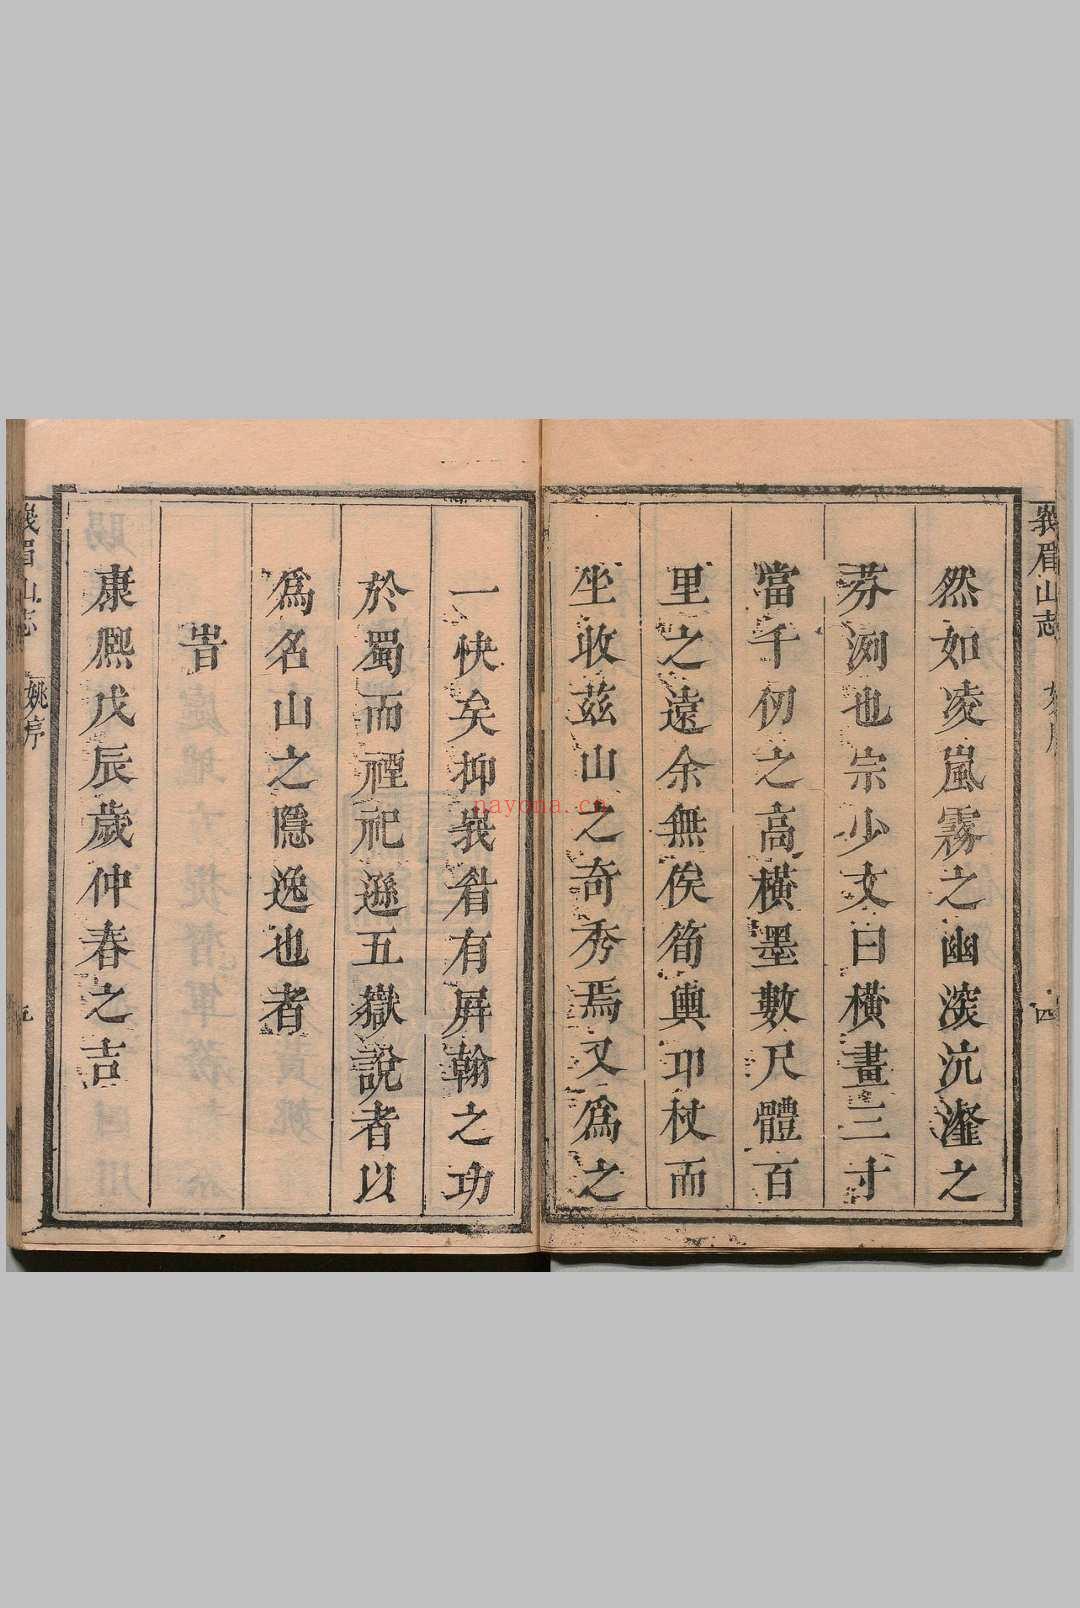 峩眉山志
四
然如凌嵐霧之幽滾沆瀣之
芬洌也宗少文曰橫畫三寸
當千仞之高橫墨數尺體百
里之遠余無俟筍輿卭杖而
坐收茲山之奇秀焉又為之
一快矣抑峩眉有屏翰之功
於蜀而禋祀遜五嶽說者以
為名山之隱逸也者
旹
康熈戊辰歲仲春之吉
峩眉山志
姚序
五
nayona.cn